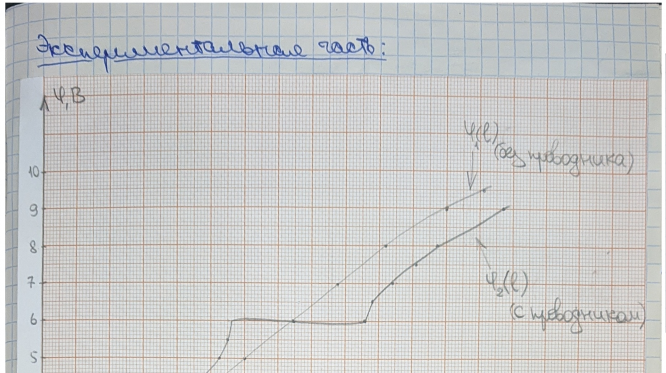 Экспериментальная часть:
φ,В
φ(l)
(без проводника)
10
9
8
7
φ₂(l)
(с проводником)
6
5